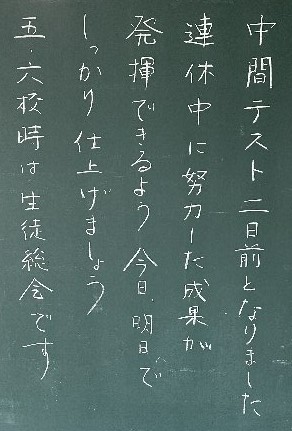 中間テスト二日前となりました
連休中に努力した成果が
発揮できるよう今日、明日で
しっかり仕上げましょう
五・六校時は生徒総会です